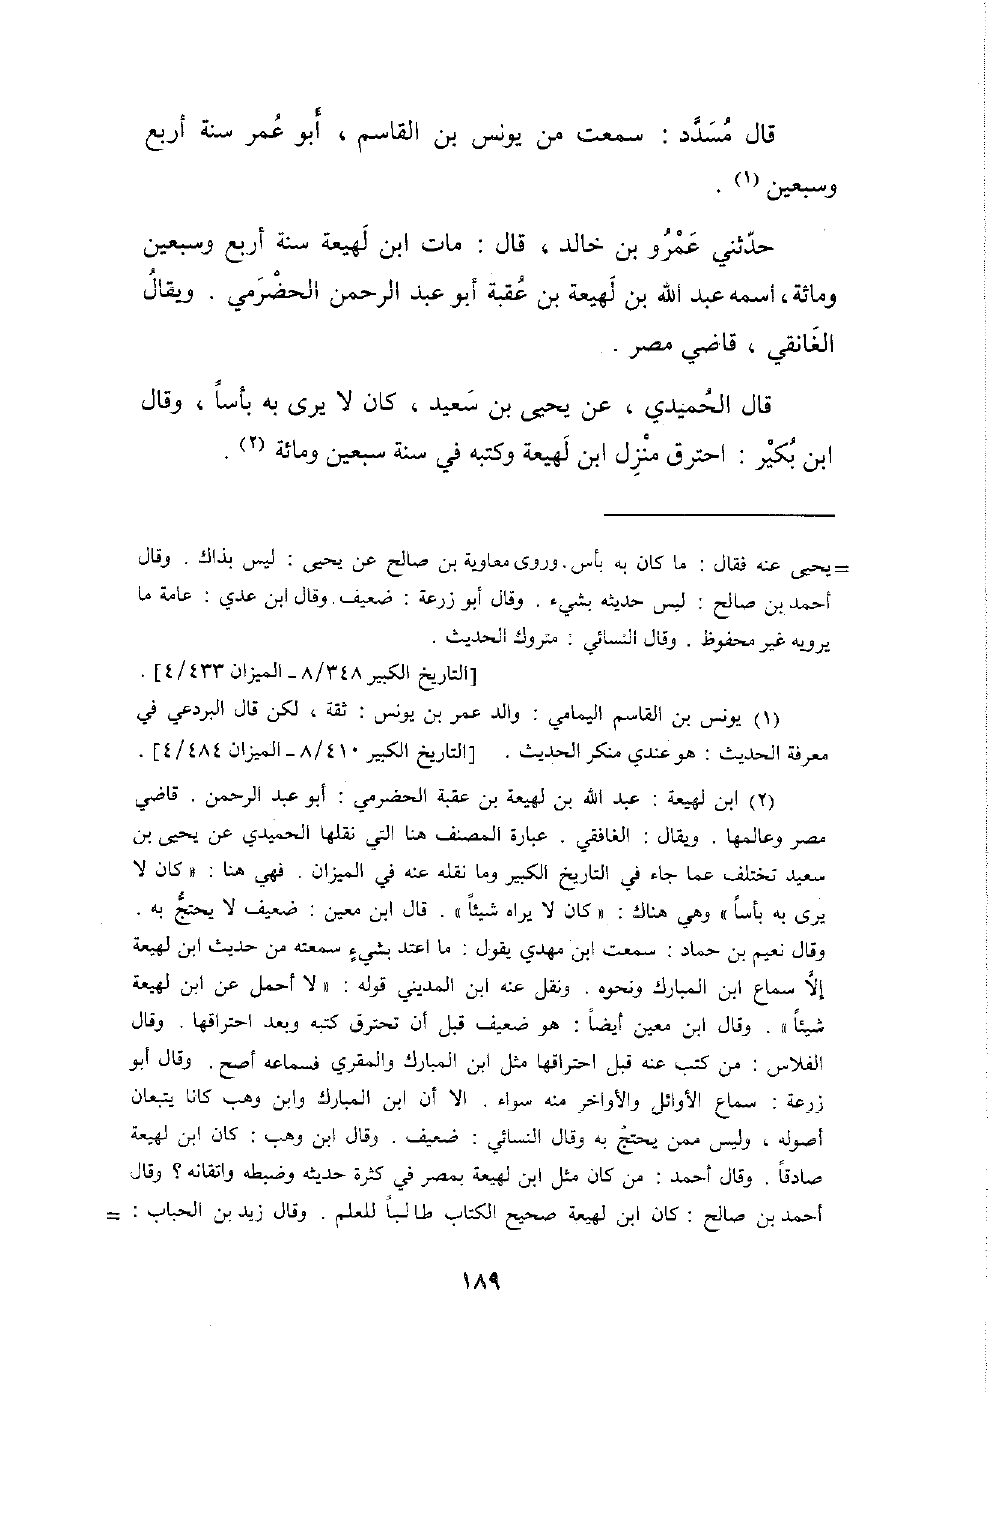 قال مُسَدَّد : سمعت من يونس بن القاسم ، أَبو عُمر سنة أربع
وسبعين (١) .
حدّثني عَمْرُو بن خالد ، قال : مات ابن لَهيعة سنة أربع وسبعين
ومائة ، اسمه عبد الله بن لَهيعة بن عُقبة أبو عبد الرحمن الحضْرَمي . ويقالُ
الغَانقي ، قاضي مصر .
قال الحُميدي ، عن يحيى بن سَعيد ، كان لا يرى به بأساً ، وقال
ابن بُكيْر : احترق منْزِل ابن لَهيعة وكتبه في سنة سبعين ومائة (٢) .
= يحيى عنه فقال : ما كان به بأس . وروى معاوية بن صالح عن يحيى : ليس بذاك . وقال
أحمد بن صالح : ليس حديثه بشيء . وقال أبو زرعة : ضعيف . وقال ابن عدي : عامة ما
يرويه غير محفوظ . وقال النسائي : متروك الحديث .
[التاريخ الكبير ٨/٣٤٨ - الميزان ٤/٤٣٣] .
(١) يونس بن القاسم اليمامي : والد عمر بن يونس : ثقة ، لكن قال البردعي في
معرفة الحديث : هو عندي منكر الحديث . [التاريخ الكبير ٨/٤١٠ - الميزان ٤/٤٨٤] .
(٢) ابن لهيعة : عبد الله بن لهيعة بن عقبة الحضرمي : أبو عبد الرحمن . قاضي
مصر وعالمها . ويقال : الغافقي . عبارة المصنف هنا التي نقلها الحميدي عن يحيى بن
سعيد تختلف عما جاء في التاريخ الكبير وما نقله عنه في الميزان . فهي هنا : « كان لا
يرى به بأساً » وهي هناك : « كان لا يراه شيئاً » . قال ابن معين : ضعيف لا يحتجُّ به .
وقال نعيم بن حماد : سمعت ابن مهدي يقول : ما اعتد بشيءٍ سمعته من حديث ابن لهيعة
إلَّا سماع ابن المبارك ونحوه . ونقل عنه ابن المديني قوله : « لا أحمل عن ابن لهيعة
شيئاً » . وقال ابن معين أيضاً : هو ضعيف قبل أن تحترق كتبه وبعد احتراقها . وقال
الفلاس : من كتب عنه قبل احتراقها مثل ابن المبارك والمقري فسماعه أصح . وقال أبو
زرعة : سماع الأوائل والأواخر منه سواء . الا أن ابن المبارك وابن وهب كانا يتبعان
أصوله ، وليس ممن يحتجُ به وقال النسائي : ضعيف . وقال ابن وهب : كان ابن لهيعة
صادقاً . وقال أحمد : من كان مثل ابن لهيعة بمصر في كثرة حديثه وضبطه واتقانه ؟ وقال
أحمد بن صالح : كان ابن لهيعة صحيح الكتاب طالباً للعلم . وقال زيد بن الحباب : =
١٨٩